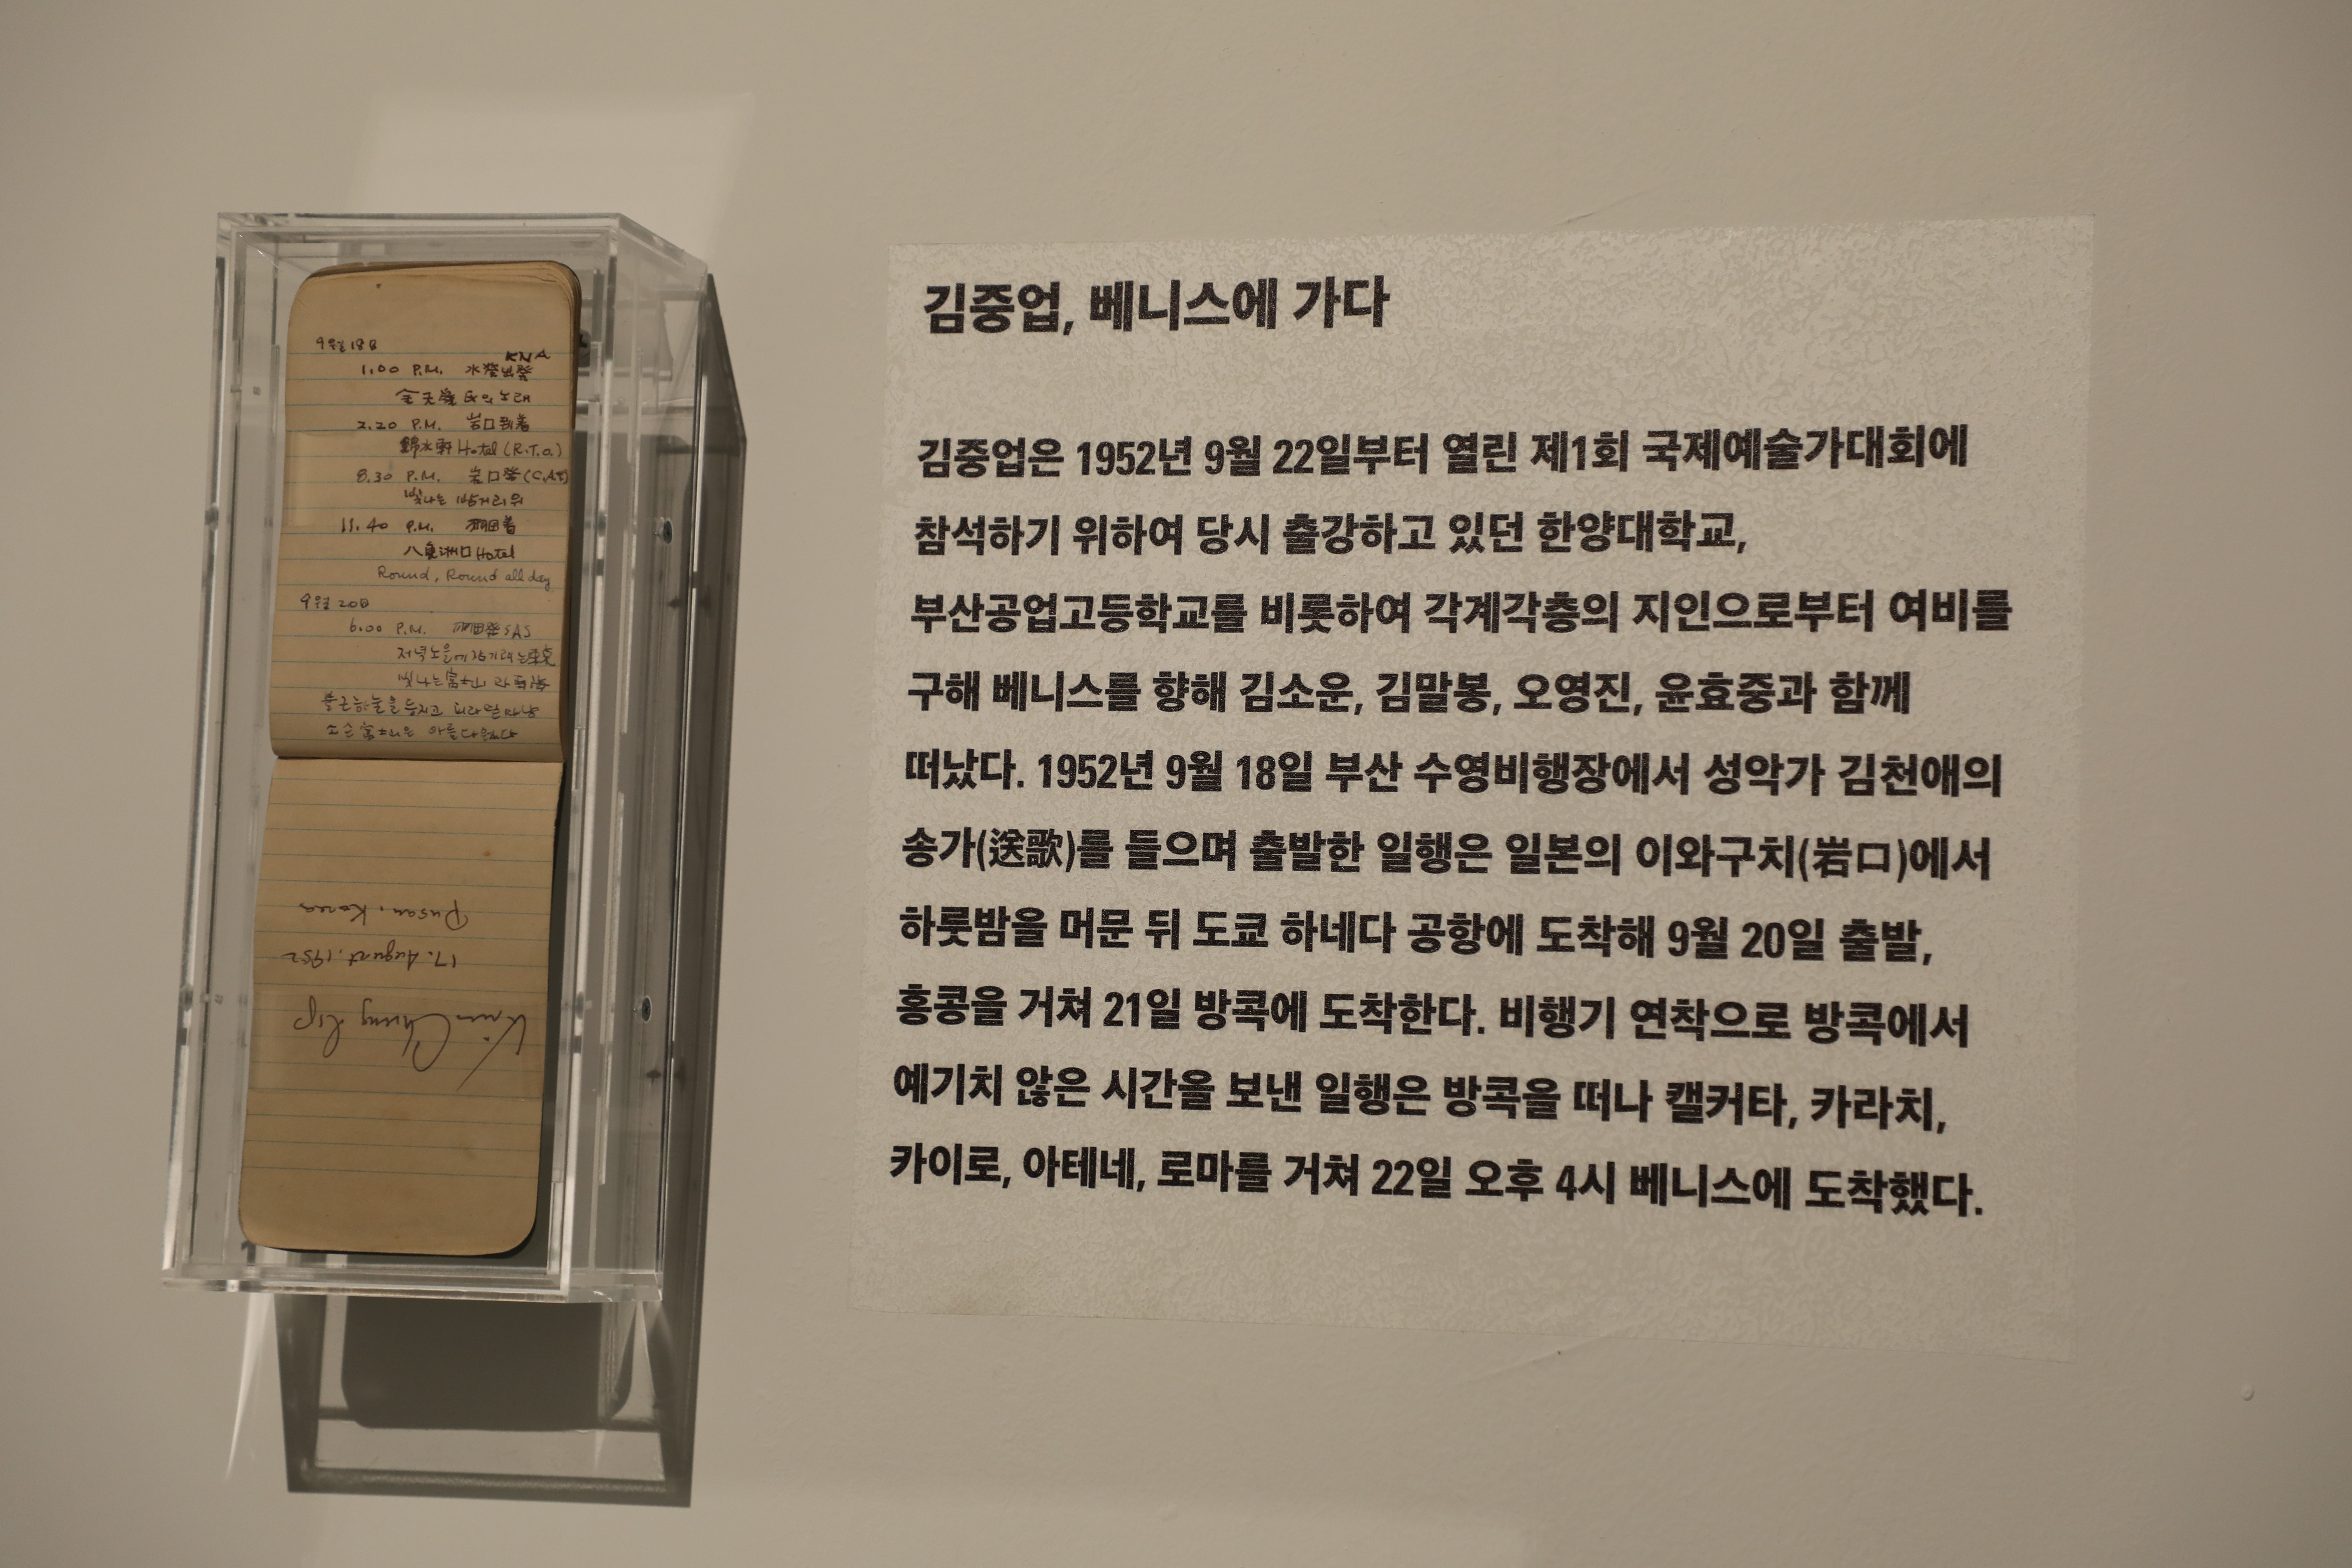 9월 18日
KNA
1.00 P.M. 水營出發
金天愛 氏의 노래
2.20 P.M. 岩口到着
錦水軒 Hotel (R.T.O.)
8.30 P.M. 岩口發
빛나는 밤거리위
11.40 P.M. 羽田着
八重洲口 Hotel
Round, Round all day
9월 20日
6.00 P.M. 羽田發 SAS
저녁노을에 잠기려는 東京
빛나는 富士山
붉은 하늘을 등지고
소슨 아름다웠다
Pusan, Korea
17. August. 1952
Kim Chung Up
김중업, 베니스에 가다
김중업은 1952년 9월 22일부터 열린 제1회 국제예술가대회에
참석하기 위하여 당시 출강하고 있던 한양대학교,
부산공업고등학교를 비롯하여 각계각층의 지인으로부터 여비를
구해 베니스를 향해 김소운, 김말봉, 오영진, 윤효중과 함께
떠났다. 1952년 9월 18일 부산 수영비행장에서 성악가 김천애의
송가(送歌)를 들으며 출발한 일행은 일본의 이와구치(岩口)에서
하룻밤을 머문 뒤 도쿄 하네다 공항에 도착해 9월 20일 출발,
홍콩을 거쳐 21일 방콕에 도착한다. 비행기 연착으로 방콕에서
예기치 않은 시간을 보낸 일행은 방콕을 떠나 캘커타, 카라치,
카이로, 아테네, 로마를 거쳐 22일 오후 4시 베니스에 도착했다.